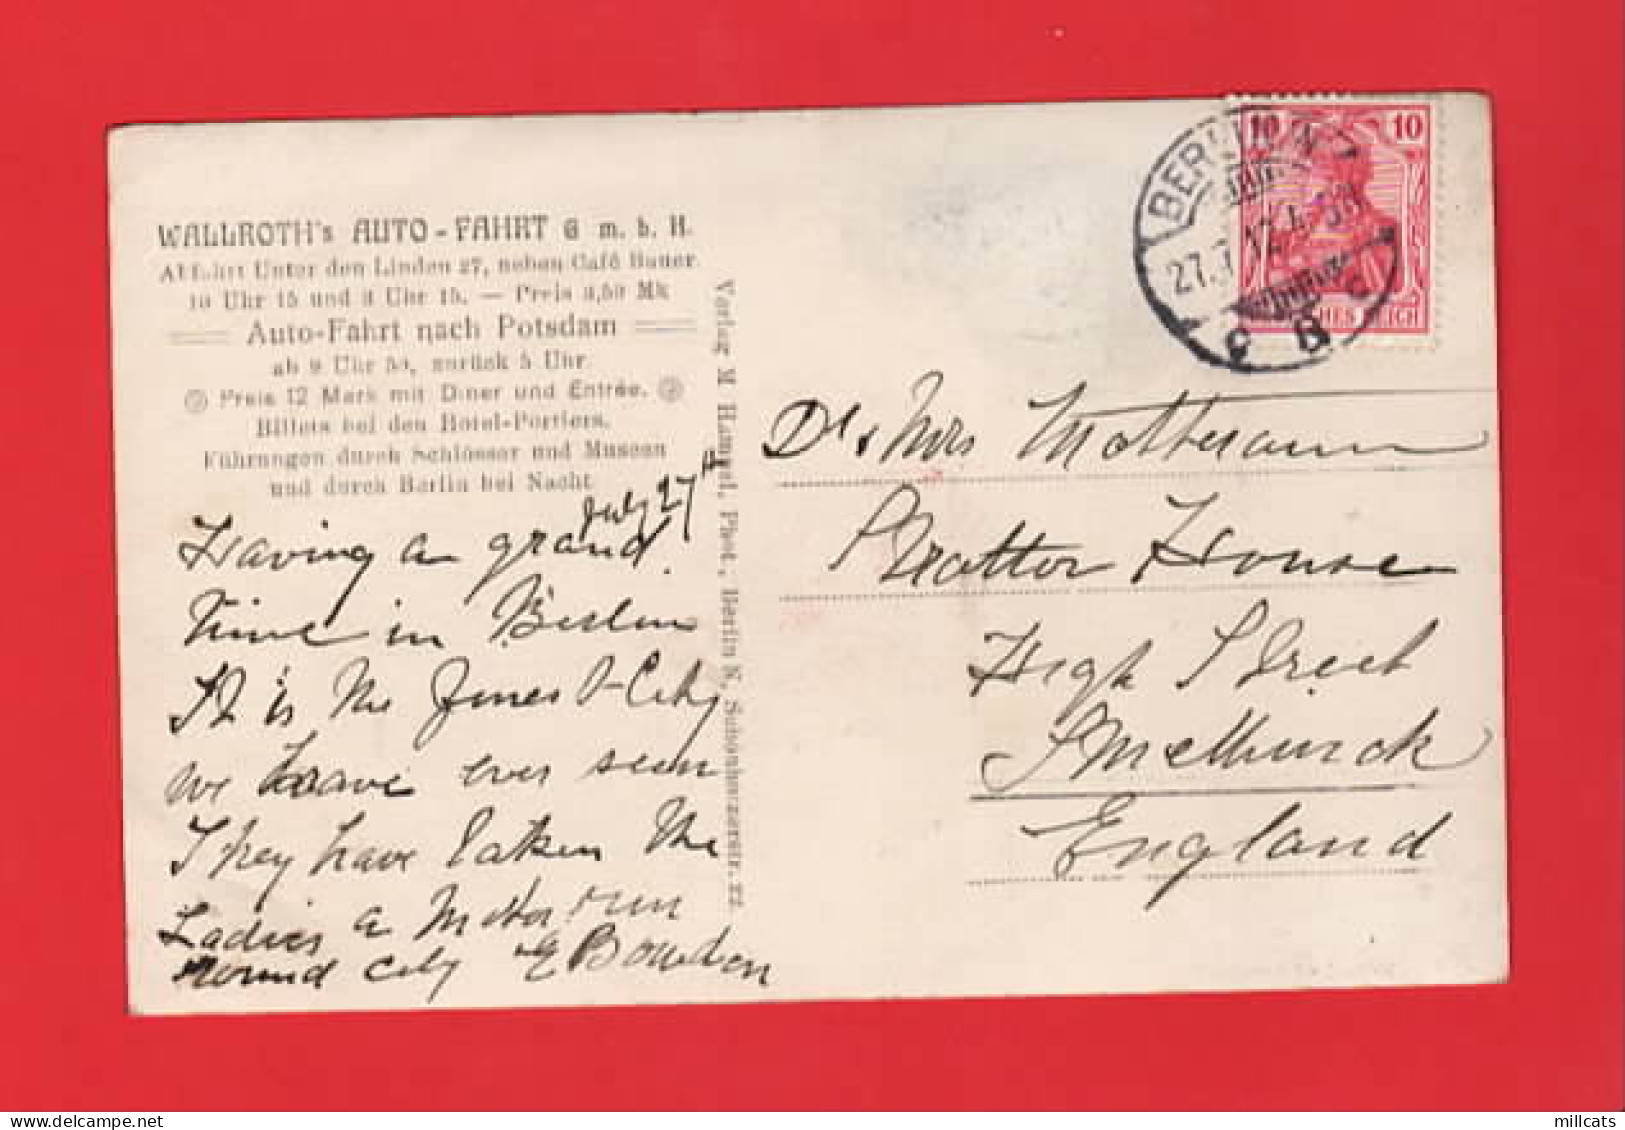 WALLROTH's AUTO-FAHRT G m. b. H.
Abfahrt Unter den Linden 27, neben Café Bauer
10 Uhr 15 und 3 Uhr 15. — Preis 3,50 Mk
Auto-Fahrt nach Potsdam
ab 9 Uhr 50, zurück 5 Uhr.
Preis 12 Mark mit Diner und Entrée.
Billets bei den Hotel-Portiers.
Führungen durch Schlösser und Museen
und durch Berlin bei Nacht
July 27th
Having a grand
time in Berlin
It is the finest City
we have ever seen
They have taken the
Ladies a Motor run
round City E Bowden
Verlag M Hampel, Phot., Berlin N, Schönhauserstr. 22
BERLIN
27.7.12.4-5N
10 10
REICH
Dr & Mrs
House
High Street
England
millcats